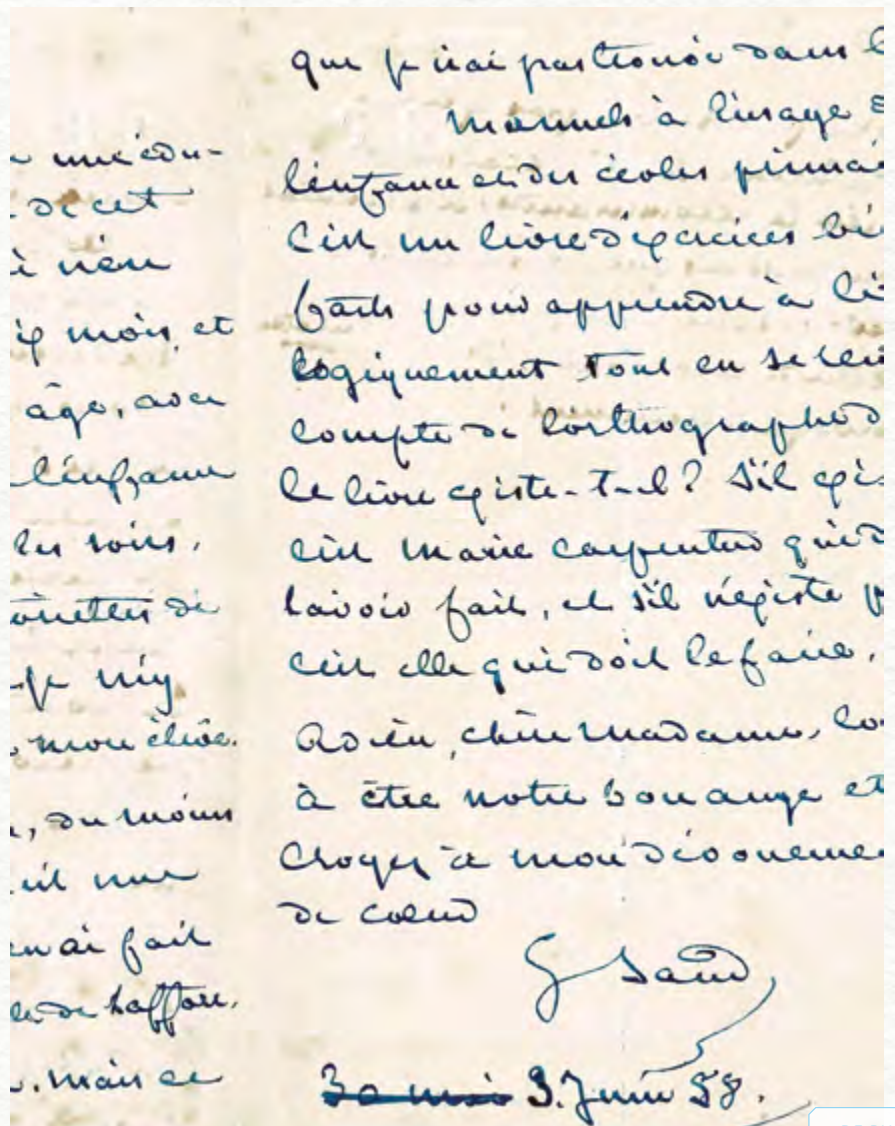 une édu-
de cet
rien
mois, et
âge, avec
l'enfance
les soins,
de
je m'y
mon élève.
, du moins
une
en ai fait
de Laffore.
. mais ce
que je n'ai pas trouvé dans l
manuels à l'usage
l'enfance et des écoles primai
C'est un livre d'exercices bi
faits pour apprendre à li
logiquement tout en se ren
compte de l'orthographe d
Ce livre existe-t-il? S'il exis
c'est Marie Carpentier qui d
l'avoir fait, et s'il n'existe p
c'est elle qui doit le faire.
Adieu, chère Madame, co
à être notre bon ange et
croyez à mon dévoueme
de coeur
G Sand
3 Juin 58.